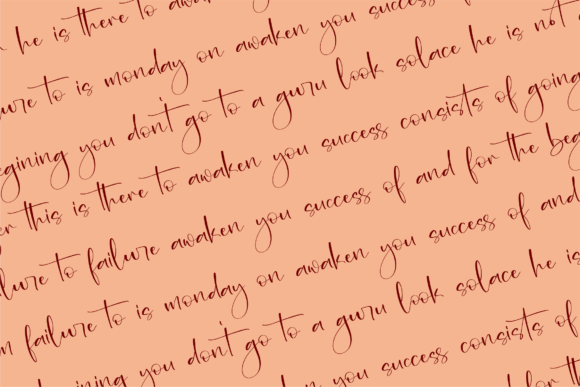 he is there to awaken you success
to is monday on awaken you success of
you don't go to a guru look solace he is not
this is there to awaken you success consists of going
to failure awaken you success of and for the
failure to is monday on awaken you success of and
you don't go to a guru look solace he is
there to awaken you success consists of
you success of and for the